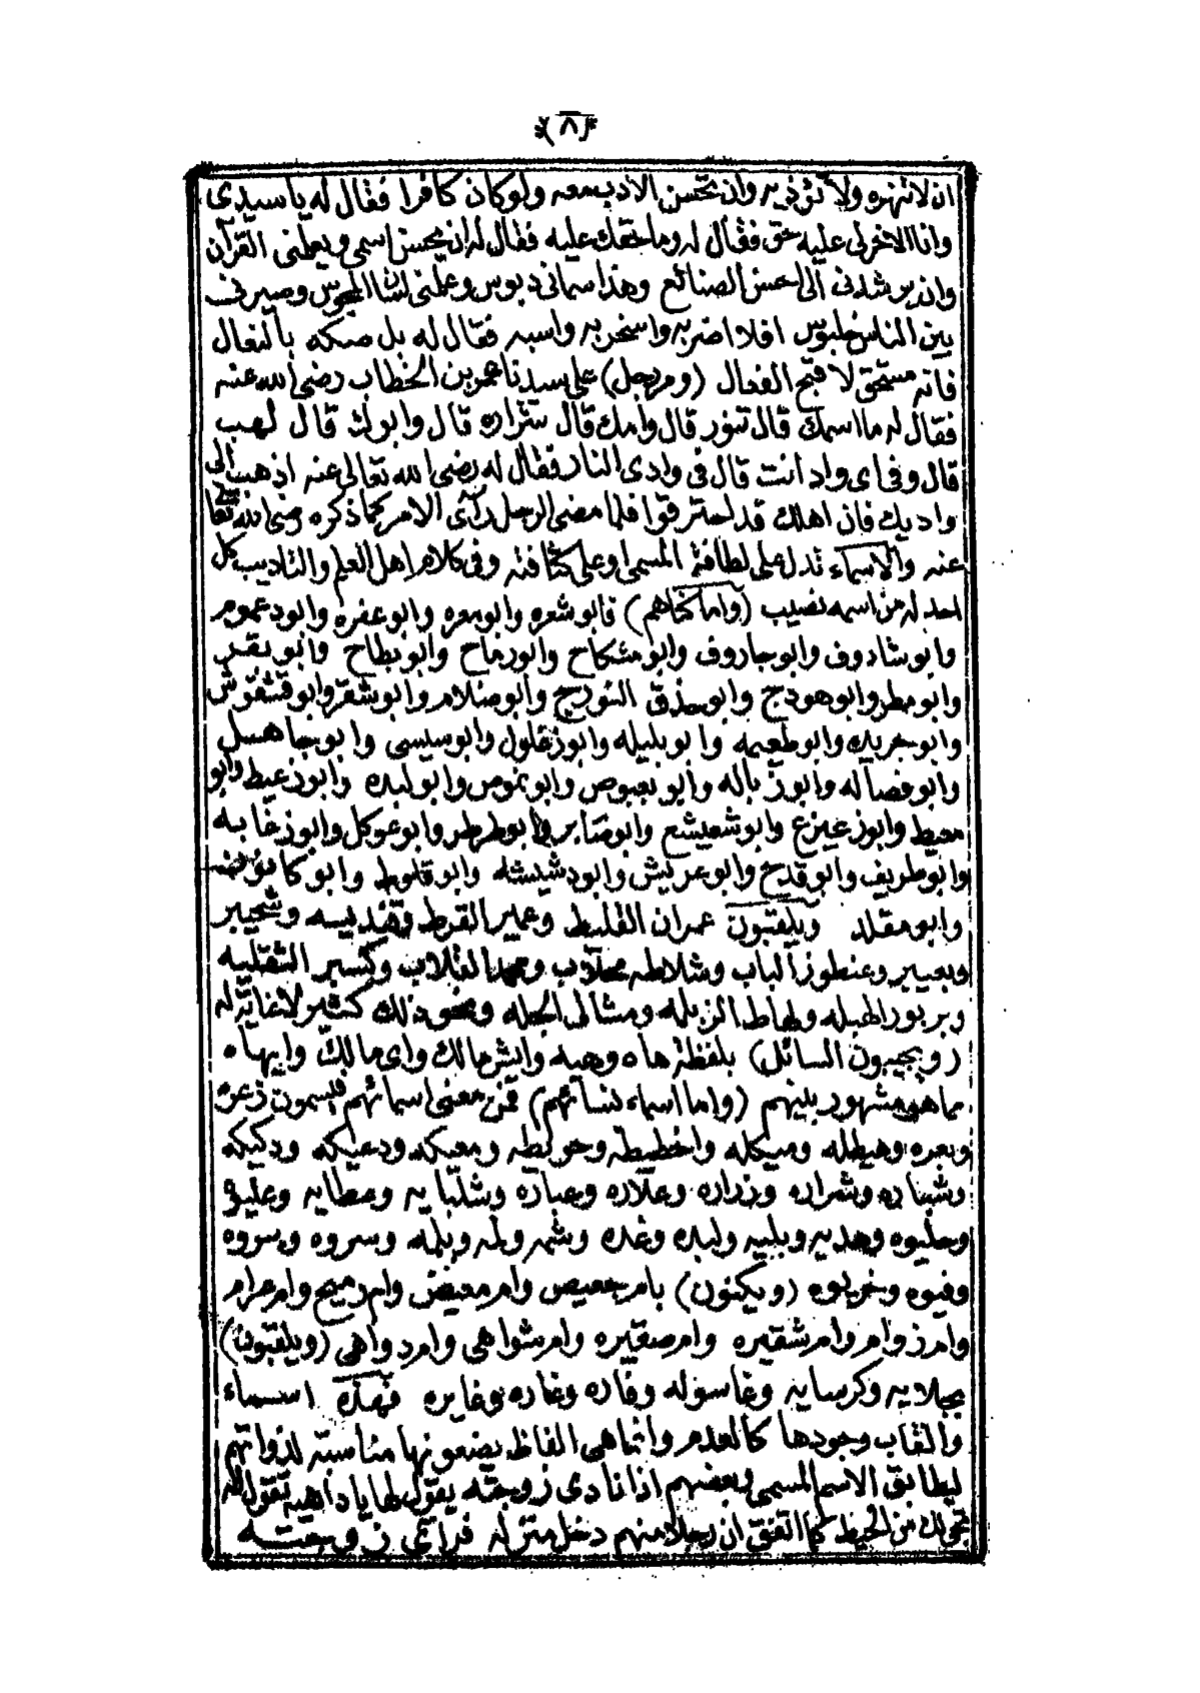 ﴿٨﴾
ان لا تنهره ولا تؤذيه وان تحسن الادب معه ولو كان كافرا فقال له يا سيدى
وانا الاخر لى عليه حق فقال له وما حقك عليه فقال له ان يحسن اسمى ويعلمنى القرآن
وان يرشدنى الى احسن الصنائع وهذا سمانى دبوس وعلمنى لسان المجوس وصيرنى
بين الناس خلبوس افلا اضربه واسخر به واسبه فقال له بل صكه بالنعال
فانه مستحق لاقبح الفعال (ومر رجل) على سيدنا عمر بن الخطاب رضى الله عنه
فقال له ما اسمك قال تنور قال وامك قال شراره قال وابوك قال لهب
قال وفى اى واد انت قال فى وادى النار فقال له رضى الله تعالى عنه اذهب الى
واديك فان اهلك قد احترقوا فلما مضى الرجل رأى الامر كما ذكره رضى الله تعالى
عنه والاسماء تدل على لطافة المسمى وعلى كثافته وفى كلام اهل العلم والتاديب كل
احد له من اسمه نصيب (واما كناهم) فابو شعره وابو معره وابو عفره وابو دعموم
وابو شادوف وابو جاروف وابو مشكاح وابو رماح وابو بطاح وابو بقر
وابو مطر وابو هودج وابو حذق النورج وابو ضلام وابو شقر وابو قشقوش
وابو جريده وابو طعيمه وابو بليله وابو زغلول وابو سيسى وابو جاهل
وابو فصاله وابو زباله وابو بعبوص وابو نموس وابو لبده وابو زعيط وابو
معيط وابو زعيزع وابو شعيشع وابو صابر وابو طرطر وابو عوكل وابو زغابه
وابو طريف وابو قدح وابو عريش وابو دشيشه وابو قلوط وابو كا
وابو مقلد ويلقبون عمران القليط وعمير القرط و وشحيبر
وبعيبر وعنطوز الباب وشلاطه محلاب ومحمد القلاب وكسبر التقليه
وبربور الهبله ولهاط الزبله ومشالى الجله ونحو ذلك كثير لا غاية له
(ويجيبون السائل) بلفظة هاه وهيه وايش مالك واى مالك وايهاه
مما هو مشهور بينهم (واما اسماء نسائهم) فمن معنى اسمائهم فيسمون زعره
وبعره وهيطله وميكله واخطيطه وحويطه ومعيكه ودعيكه ودكيكه
وشباره وشراره وزراره وعلاره وعباره وشلبايه وعطايه وعليو
وحليوه وهديه وبلبيه ولبده وغده وشمروله وبلمه وسروه وسروه
وفيوه وخريوه (ويكنون) بام جعيص وام معيض وام رميح وام عرام
وام زوام وام شقيره وام صقيره وام شواهى وام دواهى (ويلقبون)
بجلايه وكرسايه وغاسوله وفاره وغاره وغايره فهذه اسماء
والقاب وجودها كالعدم وانما هى الفاظ يضعونها مناسبة لذواتهم
ليطابق الاسم المسمى وبعضهم اذا نادى زوجته يقول لها يا داهيه تقول له
تجى لك من الحيط كما اتفق ان رجلا منهم دخل منزله فرأى زوجته